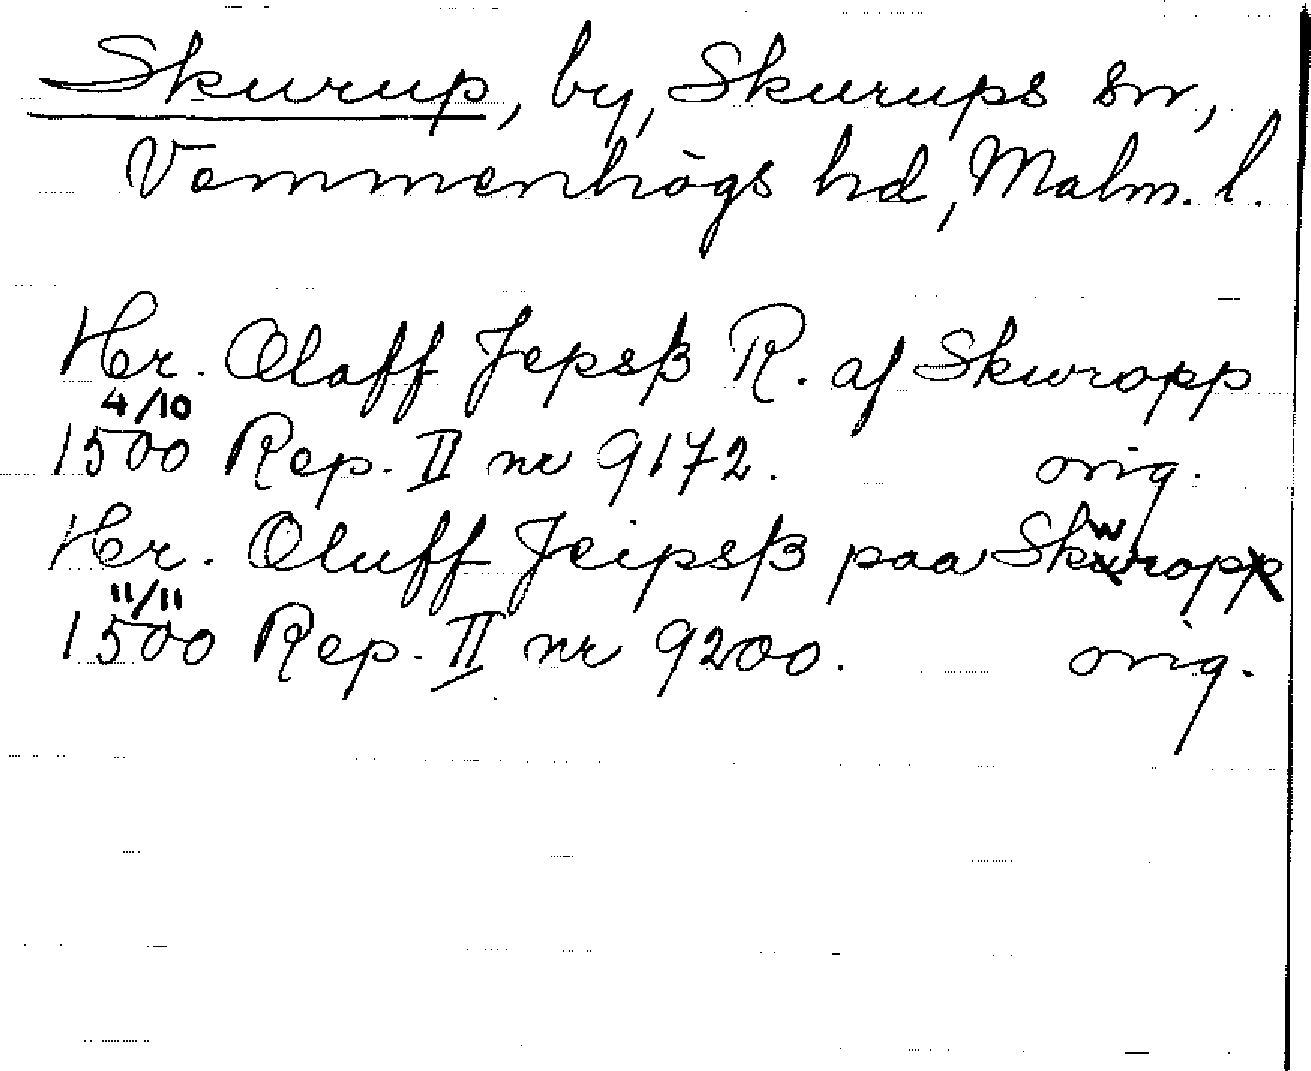 Skurup, by, Skurups sn,
Vemmenhögs hd, Malm. l.
Hr. Olaff Jepsß R. af Skwropp
4/10
1500 Rep. II nr 9172. orig.
Hr. Oluff Jeipsß paa Skwrop
11/11
1500 Rep. II nr 9200. orig.